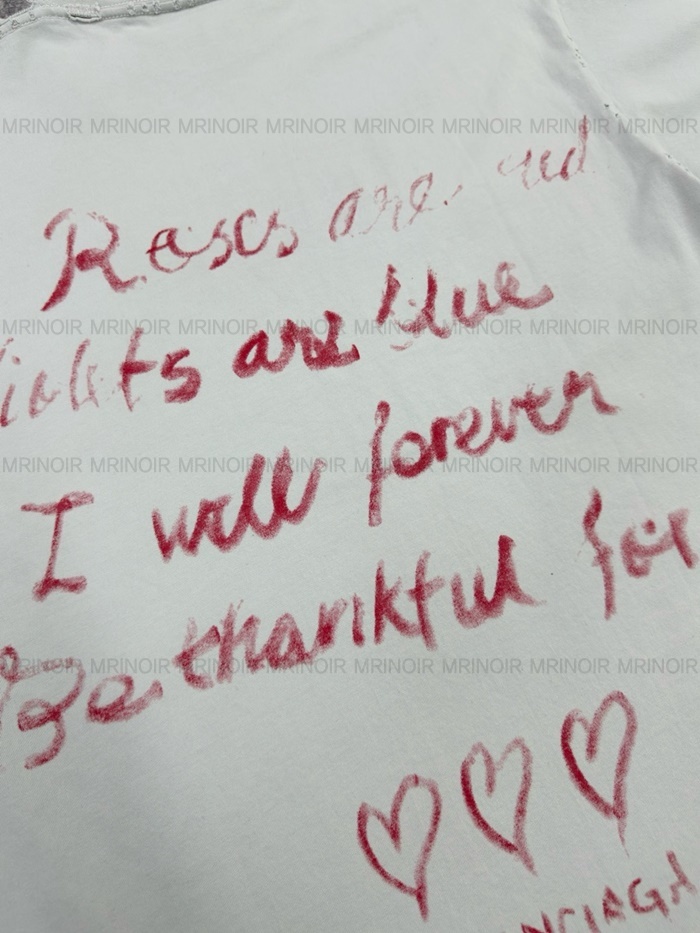 MRINOIR MRINOIR MRINOIR MRINOIR MRINOIR MRINOIR MRINOIR MRINOIR
Roses are red
iolets are blue
MRINOIR MRINOIR MRINOIR MRINOIR MRINOIR MRINOIR MRINOIR MRINOIR
I will forever
MRINOIR MRINOIR MRINOIR MRINOIR MRINOIR MRINOIR MRINOIR MRINOIR
Be thankful for
MRINOIR MRINOIR MRINOIR MRINOIR MRINOIR MRINOIR MRINOIR MRINOIR
NCIAGA